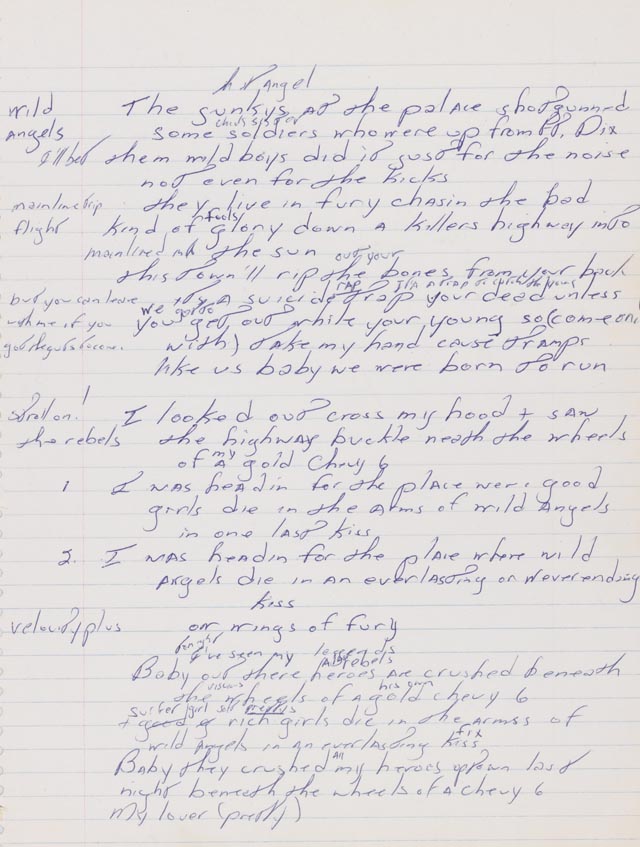 Angel
wild The junkys at the palace shotgunned
chicks sister
angels some soldiers who were up from Ft. Dix
I'll bet them wild boys did it just for the noise
not even for the kicks
mainline trip they live in fury chasin the bad
fools
flight kind of glory down a killers highway into
mainlined the sun out your
this town'll rip the bones from your back
rap its a trap to catch the young
but you can leave its a suicide trap your dead unless
we gotto
with me if you you get out while your young so (come on
got the guts to come. with) take my hand cause tramps
like us baby we were born to run
stroll on! I looked out cross my hood + saw
the rebels the highway buckle neath the wheels
my
of a gold Chevy 6
1 I was headin for the place were good
girls die in the arms of wild Angels
in one last kiss
2. I was headin for the place where wild
angels die in an everlasting or neverending
kiss
velocity plus on wings of fury
tonight
I've seen my legends
rebels
Baby out there heroes are crushed beneath
visions his own
the wheels of a gold chevy 6
surfer girl
+ good rich girls die in the armss of
fix
wild angels in an everlasting kiss
all
Baby they crushed my heroes uptown last
night beneath the wheels of a Chevy 6
My lover (pretty)